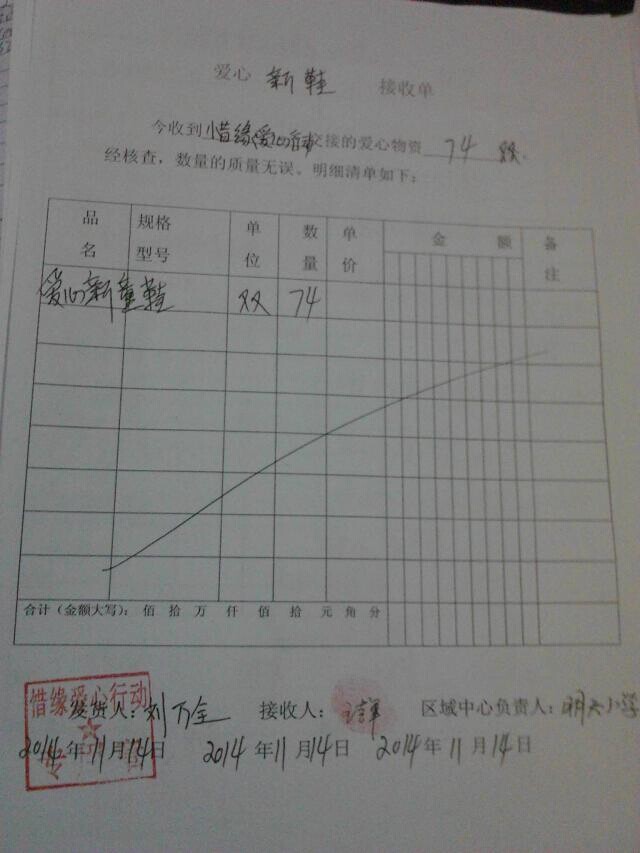 爱心 新鞋 接收单
今收到惜缘爱心 交接的爱心物资 74 双
经核查，数量的质量无误。明细清单如下：
品名 规格型号 单位 数量 单价 金额 备注
爱心新童鞋 双 74
合计（金额大写）： 佰 拾 万 仟 佰 拾 元 角 分
惜缘爱心行动
发货人：刘万全 接收人： 区域中心负责人：
2014年11月14日 2014年11月14日 2014年11月14日